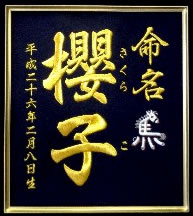 命名
さくら こ
櫻子
平成二十六年二月八日生